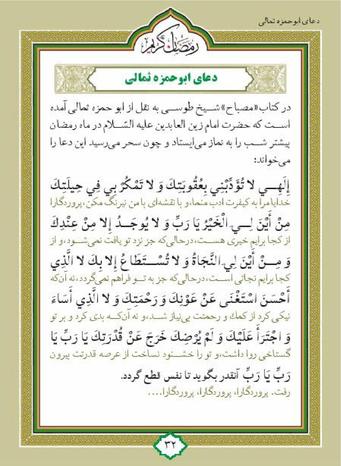 دعای ابوحمزه ثمالی
رمضان کریم
دعای ابوحمزه ثمالی
در کتاب «مصباح» شیخ طوسی به نقل از ابو حمزه ثمالی آمده
است که حضرت امام زین العابدین علیه السّلام در ماه رمضان
بیشتر شب را به نماز می‌ایستاد و چون سحر می‌رسید این دعا را
می‌خواند:
إِلَهِي لا تُؤَدِّبْنِي بِعُقُوبَتِكَ وَ لا تَمْكُرْ بِي فِي حِيلَتِكَ
خدایا مرا به کیفرت ادب منما، و با نقشه‌ای با من نیرنگ مکن، پروردگارا
مِنْ أَيْنَ لِي الْخَيْرُ يَا رَبِّ وَ لا يُوجَدُ إِلا مِنْ عِنْدِكَ
از کجا برایم خیری هست، درحالی‌که جز نزد تو یافت نمی‌شود، و از
وَ مِنْ أَيْنَ لِي النَّجَاةُ وَ لا تُسْتَطَاعُ إِلا بِكَ لا الَّذِي
کجا برایم نجاتی است، درحالی‌که جز به تو فراهم نمی‌گردد، نه آن‌که
أَحْسَنَ اسْتَغْنَى عَنْ عَوْنِكَ وَ رَحْمَتِكَ وَ لا الَّذِي أَسَاءَ
نیکی کرد از کمك و رحمتت بی‌نیاز شد، و نه آن‌که بدی کرد و بر تو
وَ اجْتَرَأَ عَلَيْكَ وَ لَمْ يُرْضِكَ خَرَجَ عَنْ قُدْرَتِكَ يَا رَبِّ يَا
گستاخی روا داشت، و تو را خشنود نساخت از عرصه قدرتت بیرون
رَبِّ يَا رَبِّ آنقدر بگوید تا نفس قطع گردد.
رفت. پروردگارا، پروردگارا، پروردگارا....
۳۲